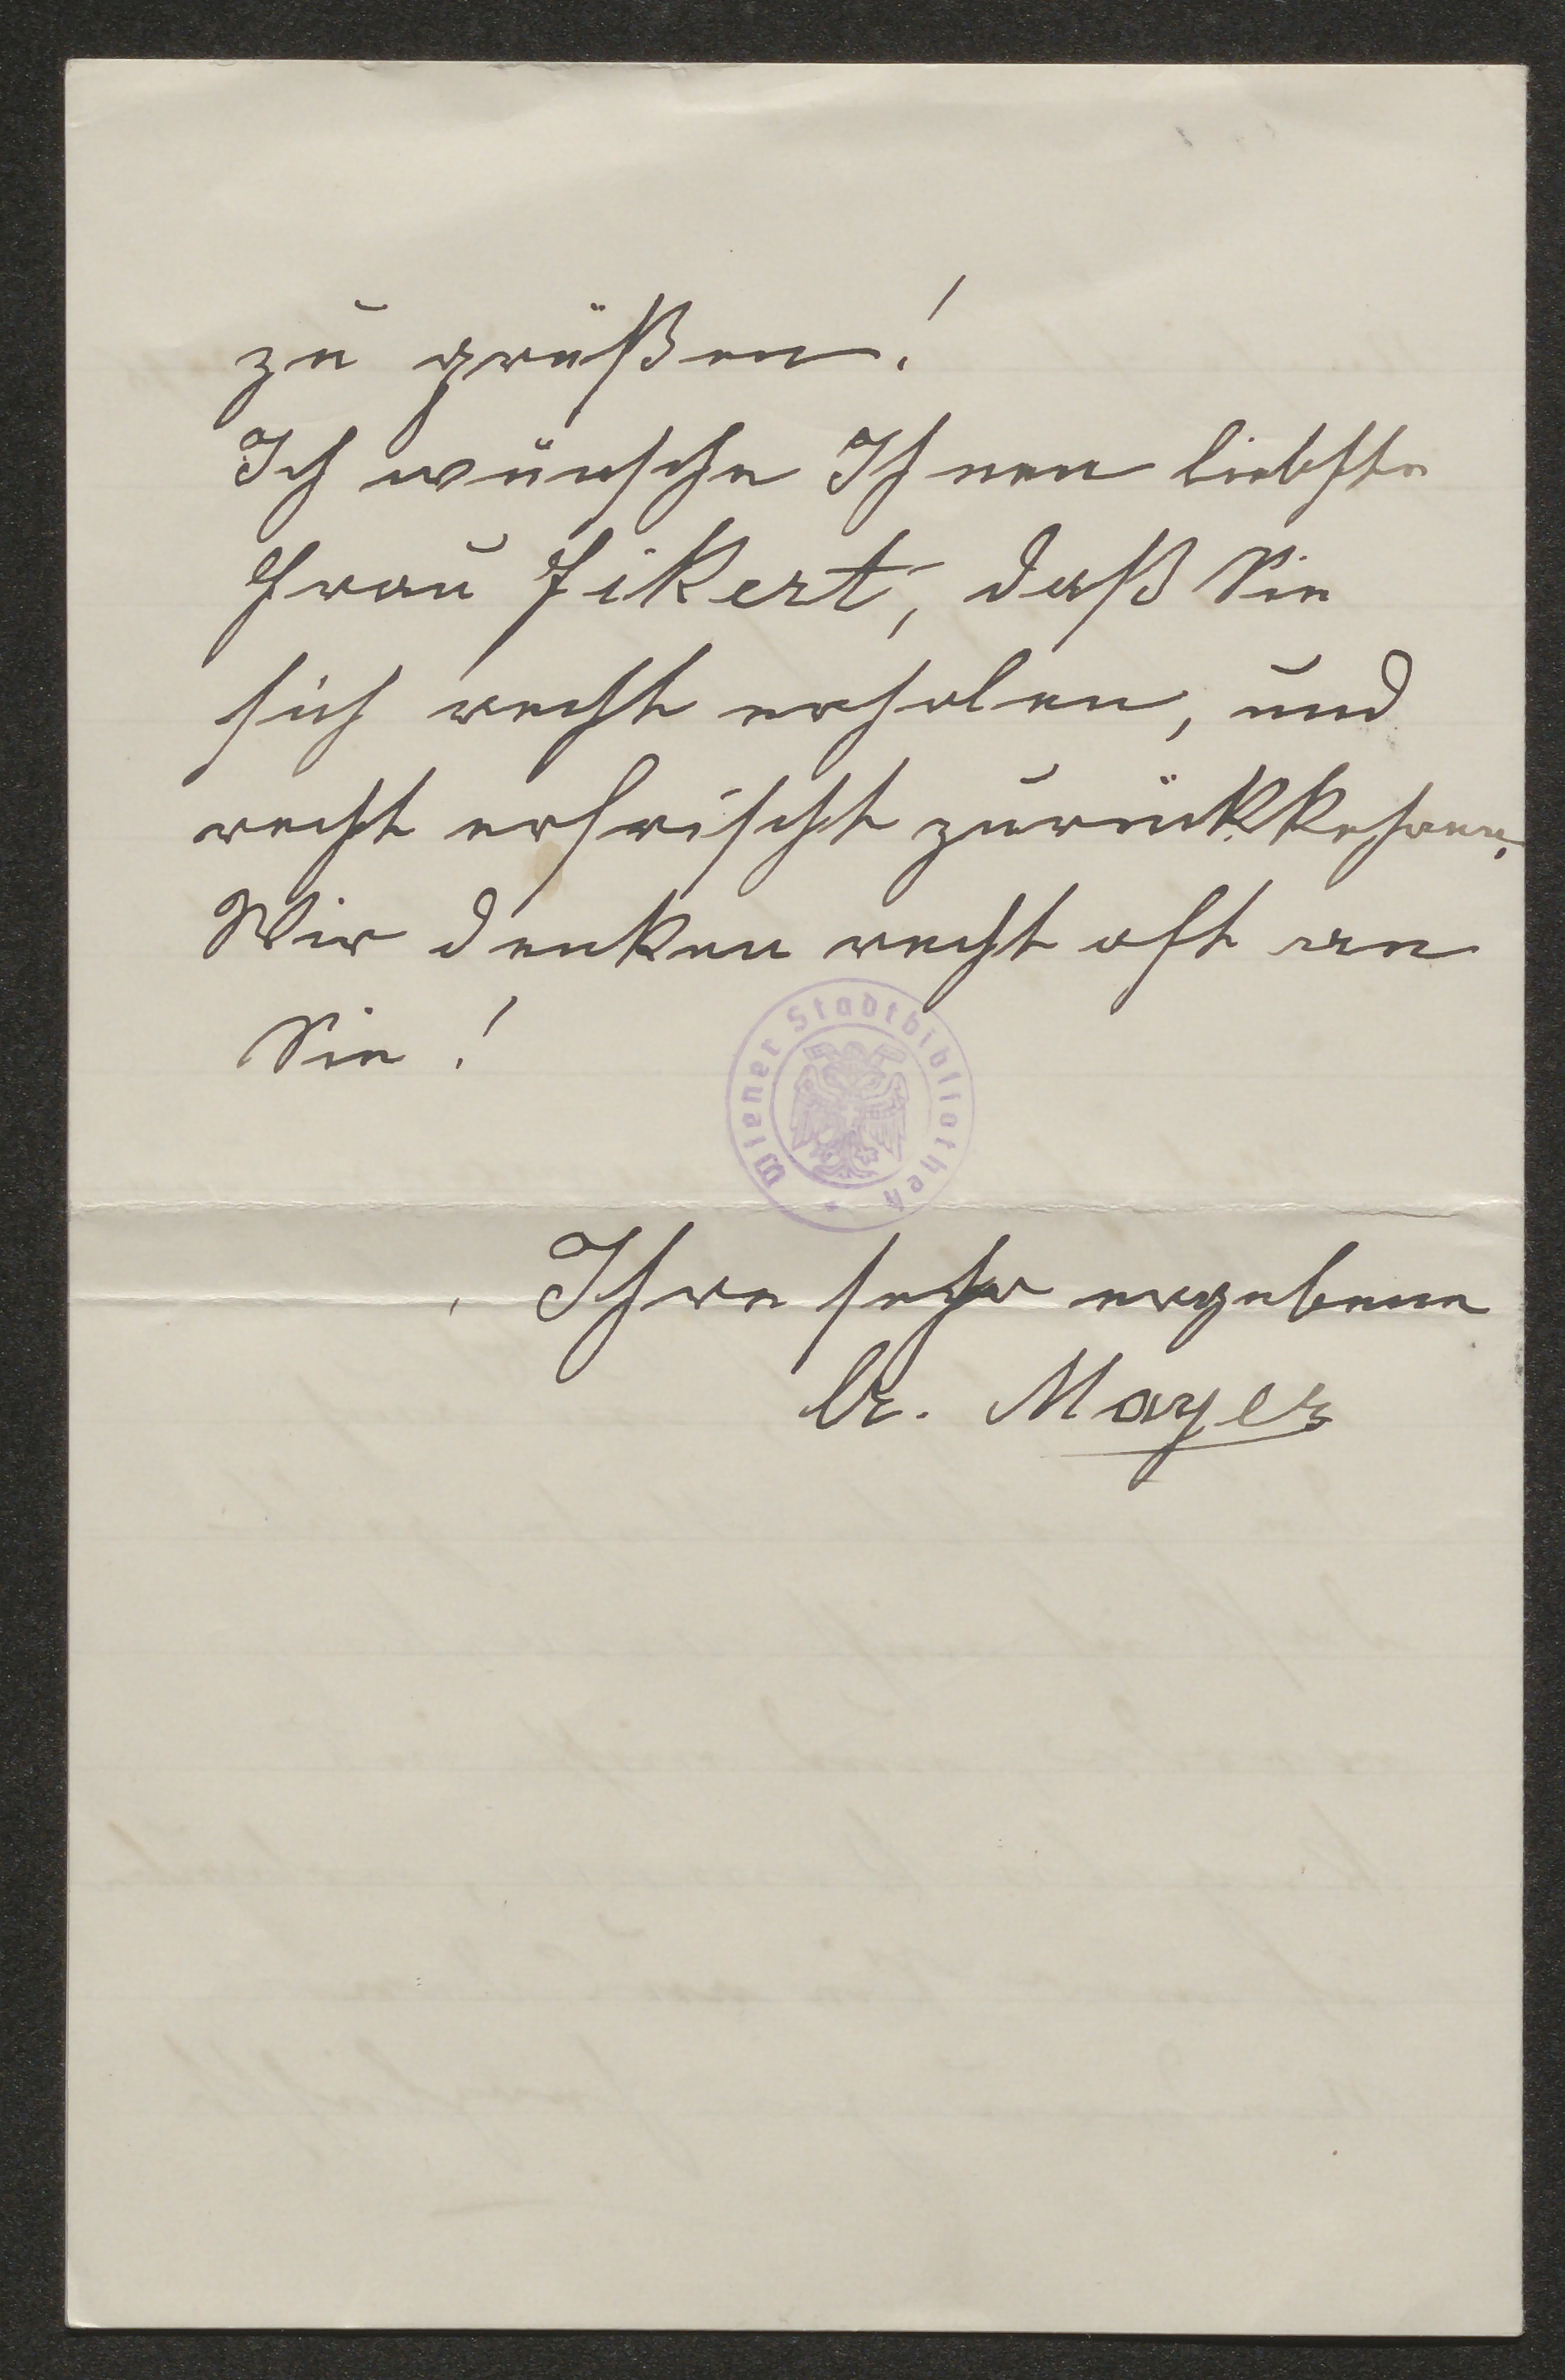 zu grüßen!
Ich wünsche Ihnen liebste
Frau Fikert, daß Sie
sich recht erholen, und
recht erfrischt zurückkehren.
Wir denken recht oft an
Sie!
Wiener Stadtbibliothek
Ihre sehr ergebene
Mayer